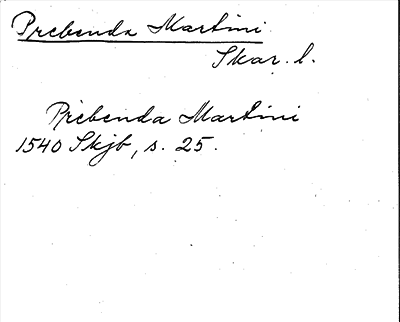 Prebenda Martini
Skar. l.
Prebenda Martini
1540 Skjb, s. 25.